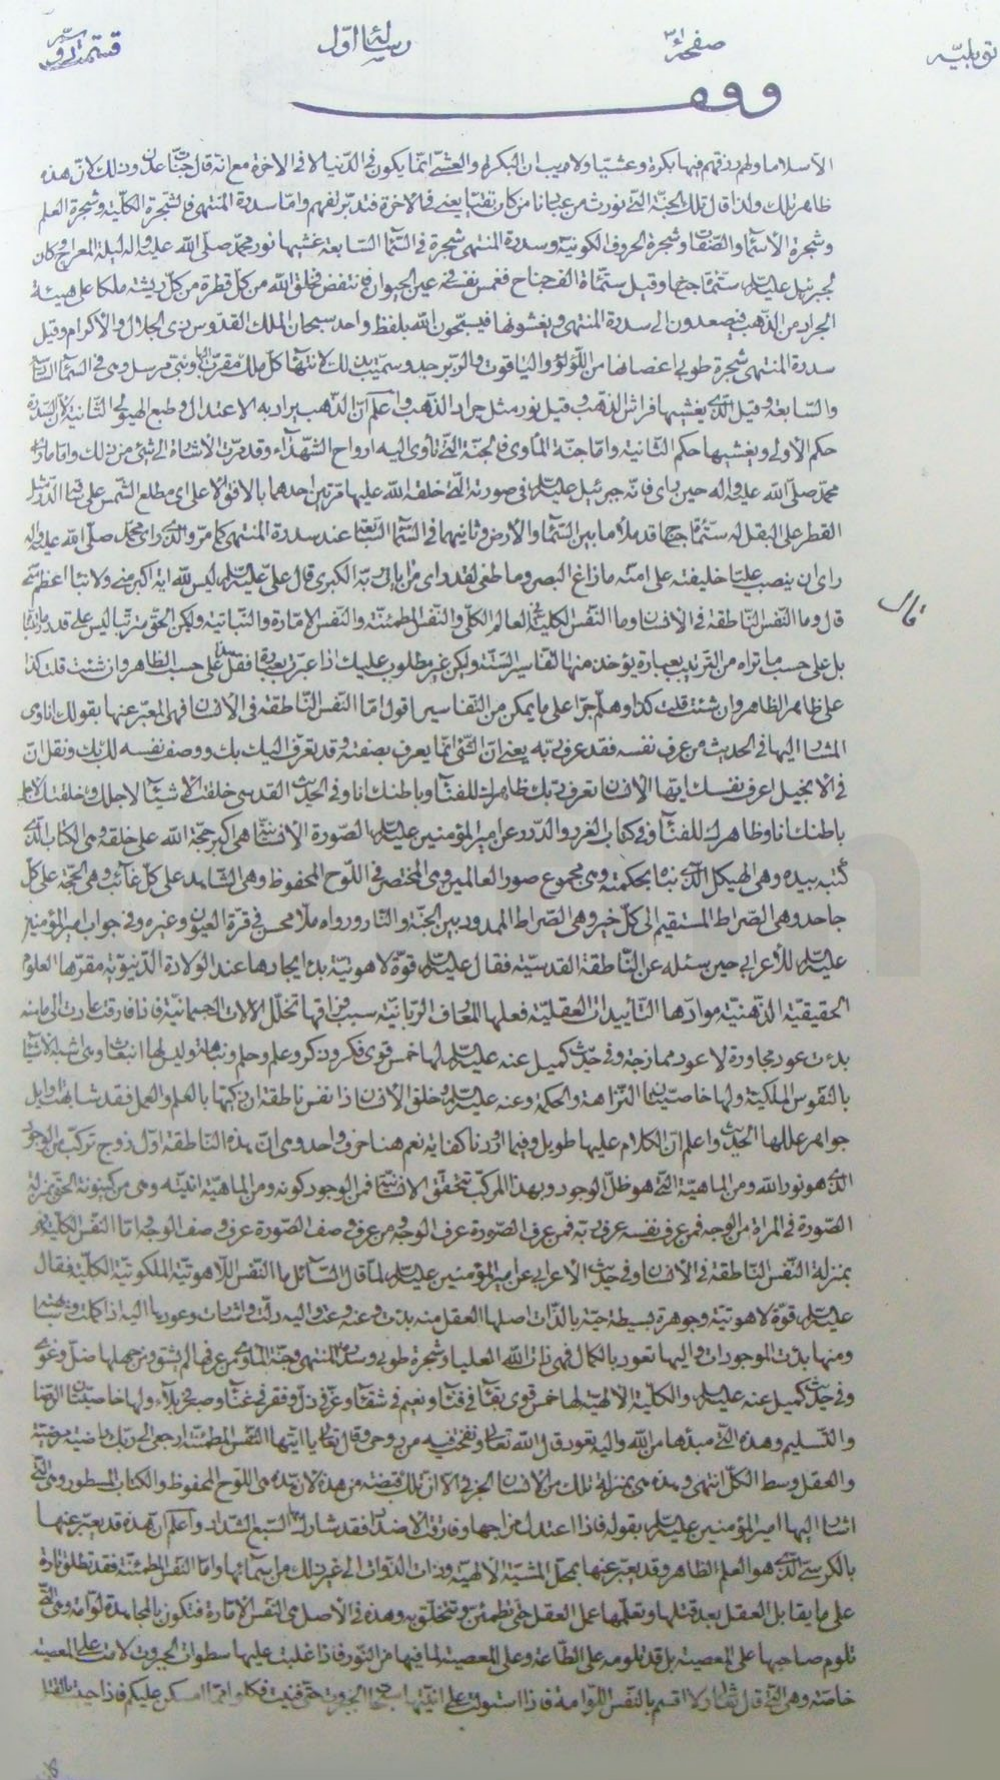 توبليه
صفحه ٢١
رساله اوّل
قسمت دوّم
وقف
الّا سلاما ولهم رزقهم فيها بكرة وعشيّا ولا ريب ان البكرة والعشىّ انّما يكون فى الدّنيا لا فى الاخرة مع انّه قال جنّات عدن وذلك لانّ هذه
ظاهر تلك ولذا قال تلك الجنّة الّتى نورث من عبادنا من كان تقيّا يعنى فى الاخرة فتدبّر لفهم وامّا سدرة المنتهى فالشّجرة الكلّيّة وشجرة العلم
وشجرة الاسماء والصّفات وشجرة الحروف الكونيّة وسدرة المنتهى شجرة فى السّماء السّابعة غشيها نور محمّد صلّى اللّه عليه واله ليلة المعراج وكان
لجبرئيل عليه السّلم ستّمأة جناح وقيل ستّمأة الف جناح فغمس نفسه فى عين الحيوان فانتفض فخلق اللّه من كلّ قطرة من كلّ ريشة ملكا على هيئة
الجراد من الذّهب فيصعدون الى سدرة المنتهى ويغشونها فيسبّحون اللّه بلفظ واحد سبحان الملك القدّوس ذى الجلال والاكرام وقيل
سدرة المنتهى شجرة طوبى اغصانها من اللّؤلؤ والياقوت والزّبرجد وسمّيت بذلك لانتهاء كلّ ملك مقرّب اليها ونبىّ مرسل وهى فى السّماء السّادسة
والسّابعة وقيل الّذى يغشيها فراش الذّهب وقيل نور مثل جراد الذّهب واعلم انّ الذّهب يراد به الاعتدال وطبع الهيولى الثّانية لانّ السّدرة
حكم الاولى ويغشيها حكم الثّانية وامّا جنّة المأوى فالجنّة الّتى تأوى اليه ارواح الشّهداء وقد مرّت الاشارة الى شىء من ذلك وامّا ما راه
محمّد صلّى اللّه عليه واله حين راى فانّه جبرئيل عليه السّلم فى صورته الّتى خلقه اللّه عليها مرّتين احدهما بالافق الاعلى اى مطلع الشّمس على ساق الدّر مثل
القطر على البقل له ستّمأة جناح قد ملأ ما بين السّماء والارض وثانيهما فى السّماء السّابعة عند سدرة المنتهى كما مرّ والّذى راى محمّد صلّى اللّه عليه واله
راى ان ينصب عليّا خليفته على امّته ما زاغ البصر وما طغى لقد راى من ايات ربّه الكبرى قال علىّ عليه السّلم ليس للّه اية اكبر منّى ولا نبأ اعظم منّى
قال
قال وما النّفس النّاطقة فى الانسان وما النّفس الكليّة فى العالم الكلّى والنّفس المطمئنّة والنّفس الامّارة والنّباتيّة ولكن الحقّ مترتّبا ليس على قدر ما رتّبنا
بل على حسب ما تراه من التّرتيب بعبارة يؤخذ منها التفاسير السّتّة ولكن غير مطلوب عليك اذا عبّرت بعبارة فقل هذا على حسب الظاهر وان شئت قلت كذا
على ظاهر الظاهر وان شئت قلت كذا وهلّم جرّا على ما يمكن من التّفاسير اقول امّا النّفس النّاطقة فى الانسان فهى المعبّر عنها بقولك انا وهى
المشار اليها فى الحديث من عرف نفسه فقد عرف ربّه يعنى انّ الشّىء انّما يعرف بصفته وقد تعرّف اليك بك ووصف نفسه لك بك ونقل انّ
فى الانجيل اعرف نفسك ايّها الانسان تعرف ربّك ظاهرك للفناء وباطنك انا وفى الحديث القدسى خلقت الاشياء لاجلك وخلقتك لاجلى
باطنك انا وظاهرك للفناء وفى كتاب الغرر والدّرر عن امير المؤمنين عليه السّلم الصّورة الانسانيّة هى اكبر حجّة اللّه على خلقه وهى الكتاب الّذى
كتبه بيده وهى الهيكل الّذى بناه بحكمته وهى مجموع صور العالمين وهى المختصر فى اللّوح المحفوظ وهى الشّاهد على كلّ غائب وهى الحجّة على كلّ
جاحد وهى الصّراط المستقيم الى كلّ خير وهى الصّراط الممدود بين الجنّة والنّار ورواه ملّا محسن فى قرّة العيون وغيره وفى جواب امير المؤمنين
عليه السّلم للأعرابى حين سئله عن النّاطقة القدسيّة فقال عليه السّلم قوّة لاهوتيّة بدء ايجادها عند الولادة الدّنيويّة مقرّها العلوم
الحقيقيّة الذّهنيّة موادّها التّأييدات العقليّة فعلها المعارف الرّبّانيّة سبب فراقها تحلّل الالات الجسمانيّة فاذا فارقت عادت الى ما منه
بدئت عود مجاورة لا عود ممازجة وفى حديث كميل عنه عليه السّلم لها خمس قوى فكر وذكر وعلم وحلم ونباهة وليس لها انبعاث وهى اشبه الاشياء
بالنّفوس الملكيّة ولها خاصيّتان النّزاهة والحكمة وعنه عليه السّلم وخلق الانسان ذا نفس ناطقة ان زكيّها بالعلم والعمل فقد شابهت اوايل
جواهر عللها الحديث واعلم انّ الكلام عليها طويل وفيما اوردنا كفاية نعم هنا حرف واحد وهى انّ هذه النّاطقة اوّل زوج تركّب من الوجود
الّذى هو نور اللّه ومن الماهيّة الّتى هو ظلّ الوجود وبهذا المركّب تحقّق الانسان فمن الوجود كونه ومن الماهيّة انيّته وهى من كينونة الحقّ بمنزلة
الصّورة فى المراة من الوجه فمن عرف نفسه عرف ربّه فمن عرف الصّورة عرف الوجه ومن عرف وصف الصّورة عرف وصف الوجه وامّا النّفس الكليّة فهو
بمنزلة النّفس النّاطقة فى الانسان وفى حديث الاعرابى عن امير المؤمنين عليه السّلم لمّا قال السّائل ما النّفس اللّاهوتيّة الملكوتيّة الكليّة فقال
عليه السّلم قوّة لاهوتيّة وجوهرة بسيطة حيّة بالذّات اصلها العقل منه بدئت وعنه وعت واليه دلّت واشارت وعودها اليه اذا كملت وشابهته
ومنها بدئت الموجودات واليها تعود بالكمال فهى ذات اللّه العليا وشجرة طوبى وسدرة المنتهى وجنّة المأوى من عرفها لم يشق ومن جهلها ضلّ وغوى
وفى حديث كميل عنه عليه السّلم والكليّة الالهيّة لها خمس قوى بقاء فى فناء ونعيم فى شقاء وعزّ فى ذلّ وفقر فى غناء وصبر فى بلاء ولها خاصيّتان الرّضا
والتّسليم وهذه الّتى مبدؤها من اللّه واليه تعود قال اللّه تعالى ونفخت فيه من روحى وقال تعالى يا ايّتها النّفس المطمئنّة ارجعى الى ربّك راضية مرضيّة
والعقل وسط الكلّ انتهى وهذه هى بمنزلة تلك من الانسان الجزئى الّا انّ تلك قبضة من هذه لانّ هذه هى اللّوح المحفوظ والكتاب المسطور وهى الّتى
اشار اليها امير المؤمنين عليه السّلم بقوله فاذا اعتدل مزاجها وفارقت الاضداد فقد شارك بها السّبع الشّداد واعلم ان هذه قد يعبّر عنها
بالكرسى الّذى هو العلم الظاهر وقد يعبّر عنها بمحلّ المشيّة الالهيّة وذات الذّوات الى غير ذلك من اسمائها وامّا النّفس المطمئنّة فقد تطلق تارة
على ما يقابل العقل بعد قتلها وتعلّمها عمل العقل حتّى تطمئنّ وتتخلّق به وهذه فى الاصل هى النّفس الامّارة فتكون بالمجاهدة لوّامة وهى الّتى
تلوم صاحبها على المعصية بل قد تلومه على الطّاعة وعلى المعصية لما فيها من النّور فاذا غلبت عليها سطوات الجبروت لامت على المعصية
خاصّة وهى الّتى قال تعالى ولا اقسم بالنّفس اللّوامة فاذا استولت على انيّتها